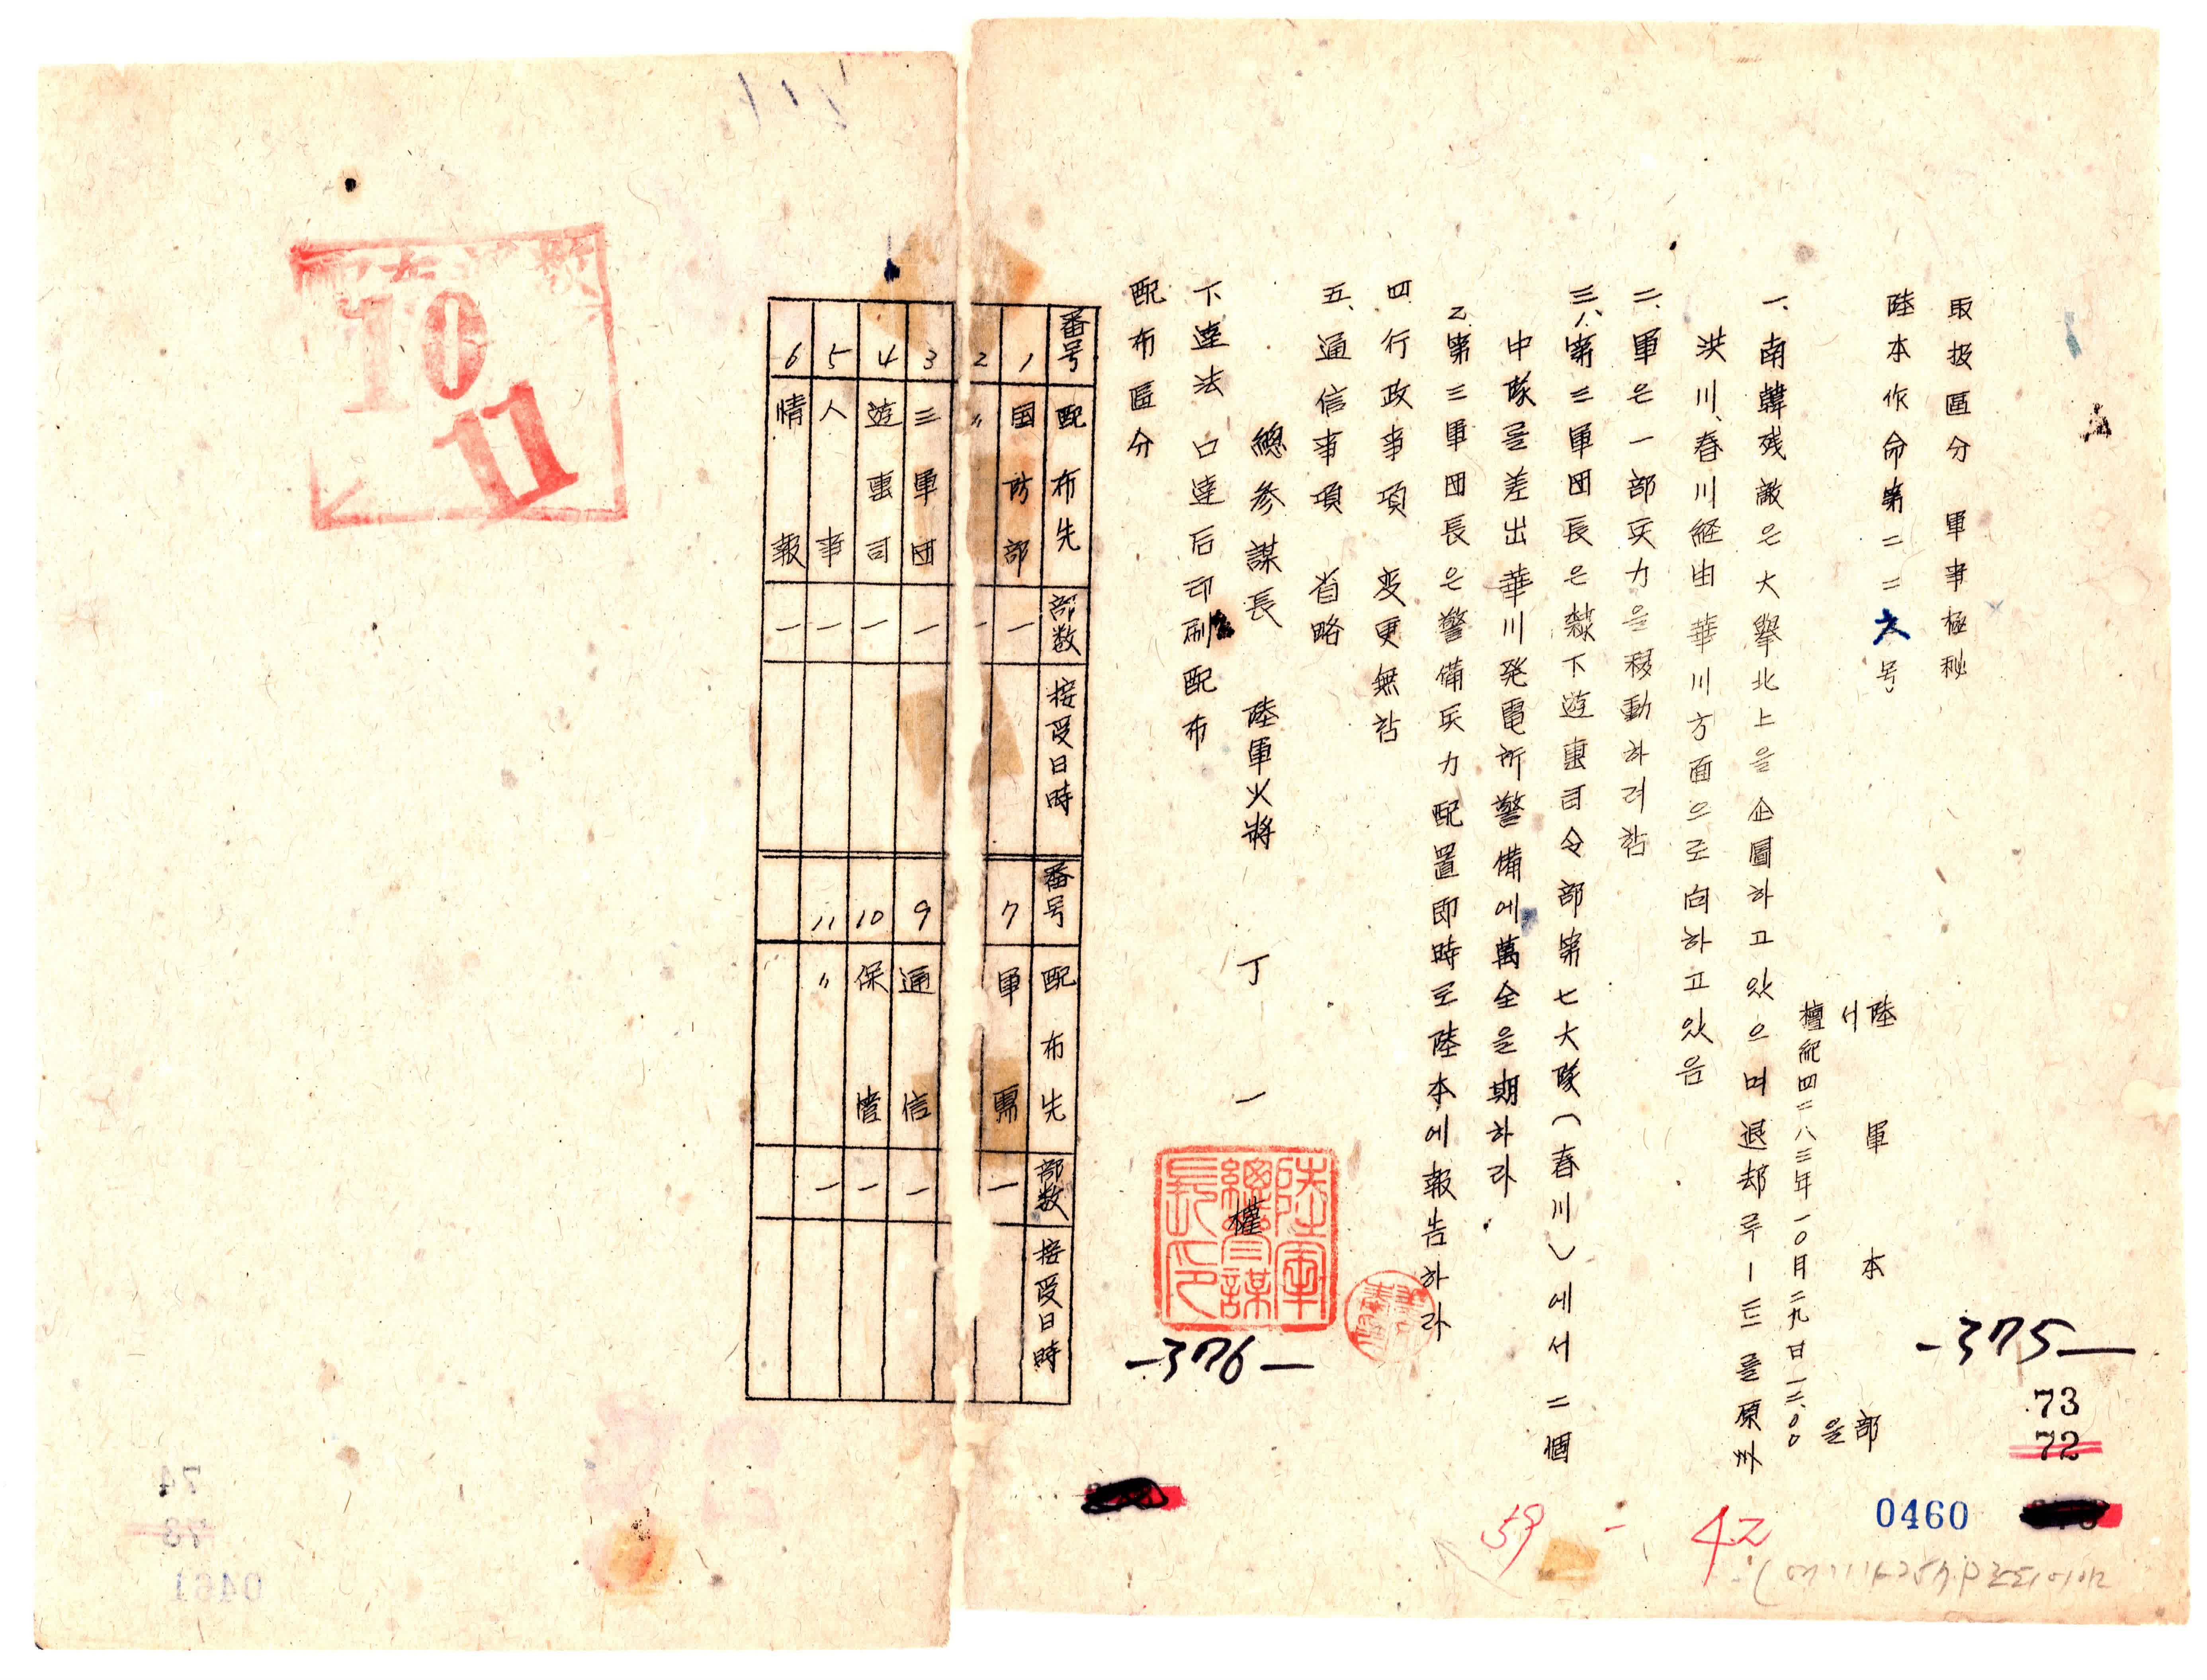 取扱區分 軍事極秘
陸本作命第二二六号
陸軍本部
서울
檀紀四二八三年一〇月二九日一三、〇〇
一、南韓残敵은大擧北上을企圖하고있으며退却루ー트를原州
洪川、春川経由華川方面으로向하고있음
二、軍은一部兵力을移動하려함
三、八、第三軍団長은隷下遊軍司令部第七大隊(春川)에서二個
中隊를差出華川発電所警備에萬全을期하라
乙、第三軍団長은警備兵力配置即時로陸本에報告하라
四 行政事項 変更無함
五、通信事項 省略
總参謀長 陸軍少將 丁一權
陸軍總參謀長印
下達法 口達后印刷配布
配布區分
番号 配布先 部数 接受日時 番号 配布先 部数 接受日時
1 国防部 一 7 軍需 一
2 〃 一
3 三軍団 一 9 通信 一
4 遊軍司 一 10 保管 一
5 人事 一 11 〃 一
6 情報 一
10
11
-375-
-376-
73
72
0460
59 - 42
74
73
0461